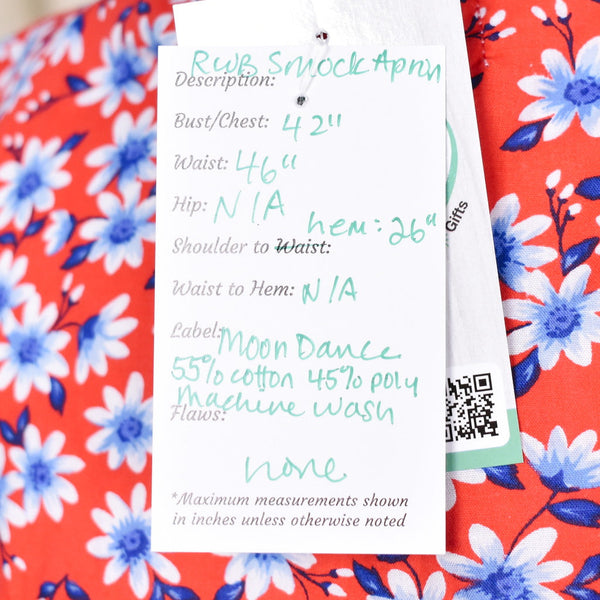 RWB Smock Apron
Description:
Bust/Chest: 42"
Waist: 46"
Hip: N/A
hem: 26"
Shoulder to Waist:
Waist to Hem: N/A
Label: Moon Dance
55% cotton 45% poly
Machine wash
Flaws:
none
*Maximum measurements shown
in inches unless otherwise noted
Gifts